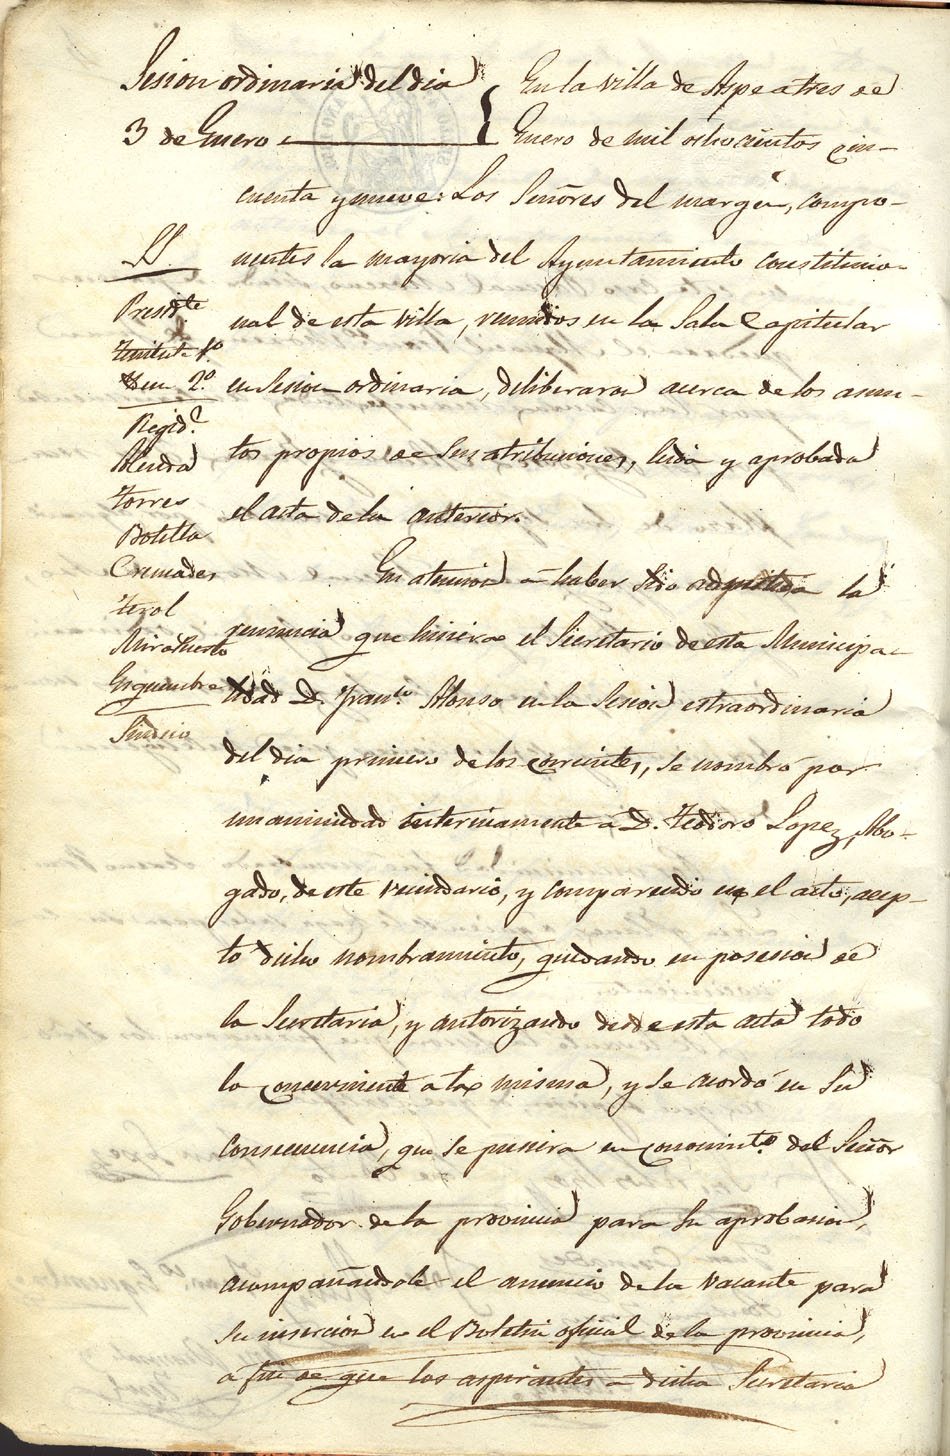 Sesion ordinaria del dia
3 de Enero
En la villa de Aspe a tres de
Enero de mil ochocientos cin-
cuenta y nueve: Los Señores del margen, compo-
nentes la mayoria del Ayuntamiento constitucio-
nal de esta villa, reunidos en la Sala Capitular
en Sesion ordinaria, deliberaron acerca de los asun-
tos propios de sus atribuciones, leida y aprobada
el acta de la anterior.
SS
Presidte
Teniente 1º
Iden 2º
Regid.s
Almira
Torres
Botella
Cremades
Terol
Mira Puerto
Esquembre
Sindico
En atencion a haber sido admitida la
renuncia que hiciera el Secretario de esta Municipa-
lidad D. Franco. Alonso en la Sesion estraordinaria
del dia primero de los corrientes, se nombró por
unanimidad interinamente a D. Teodoro Lopez, Abo-
gado, de este vecindario, y comparecido en el acto, acep-
to dicho nombramiento, quedando en posesion de
la Secretaria, y autorizando desde esta acta todo
lo concerniente a la misma, y se acordó en su
consecuencia, que se pusiera en conocimto. del Señor
Gobernador de la provincia para su aprobacion,
acompañandole el anuncio de la vacante para
su insercion en el Boletin oficial de la provincia,
a fin de que los aspirantes a dicha Secretaria